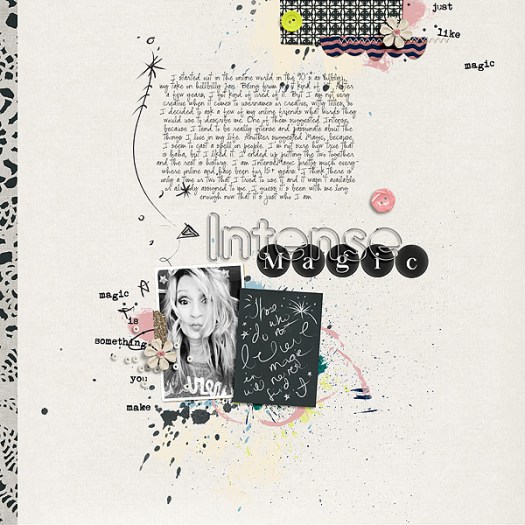 just
like
magic
I started out in the online world in the 90's as hillbilly,
my take on hillbilly Jane. Being from and kind of . After
a few years, I got kind of tired of it. But I am not very
creative when it comes to usernames or creative, witty titles, so
I decided to ask a few of my online friends what words they
would use to describe me. One of them suggested Intense,
because I tend to be really intense and passionate about the
things I love in my life. Another suggested Magic, because,
I seem to cast a spell on people. I'm not sure how true that
is haha, but I liked it. I ended up putting the two together
and the rest is history. I am IntenseMagic pretty much every-
where online and have been for 15+ years. I think there is
only a time or two that I tried to use it and it wasn't available
or already assigned to me. I guess it's been with me long
enough now that it's just who I am.
Intense
Magic
magic
is
something
you
make
those
who
do not
believe
in magic
will never
find it